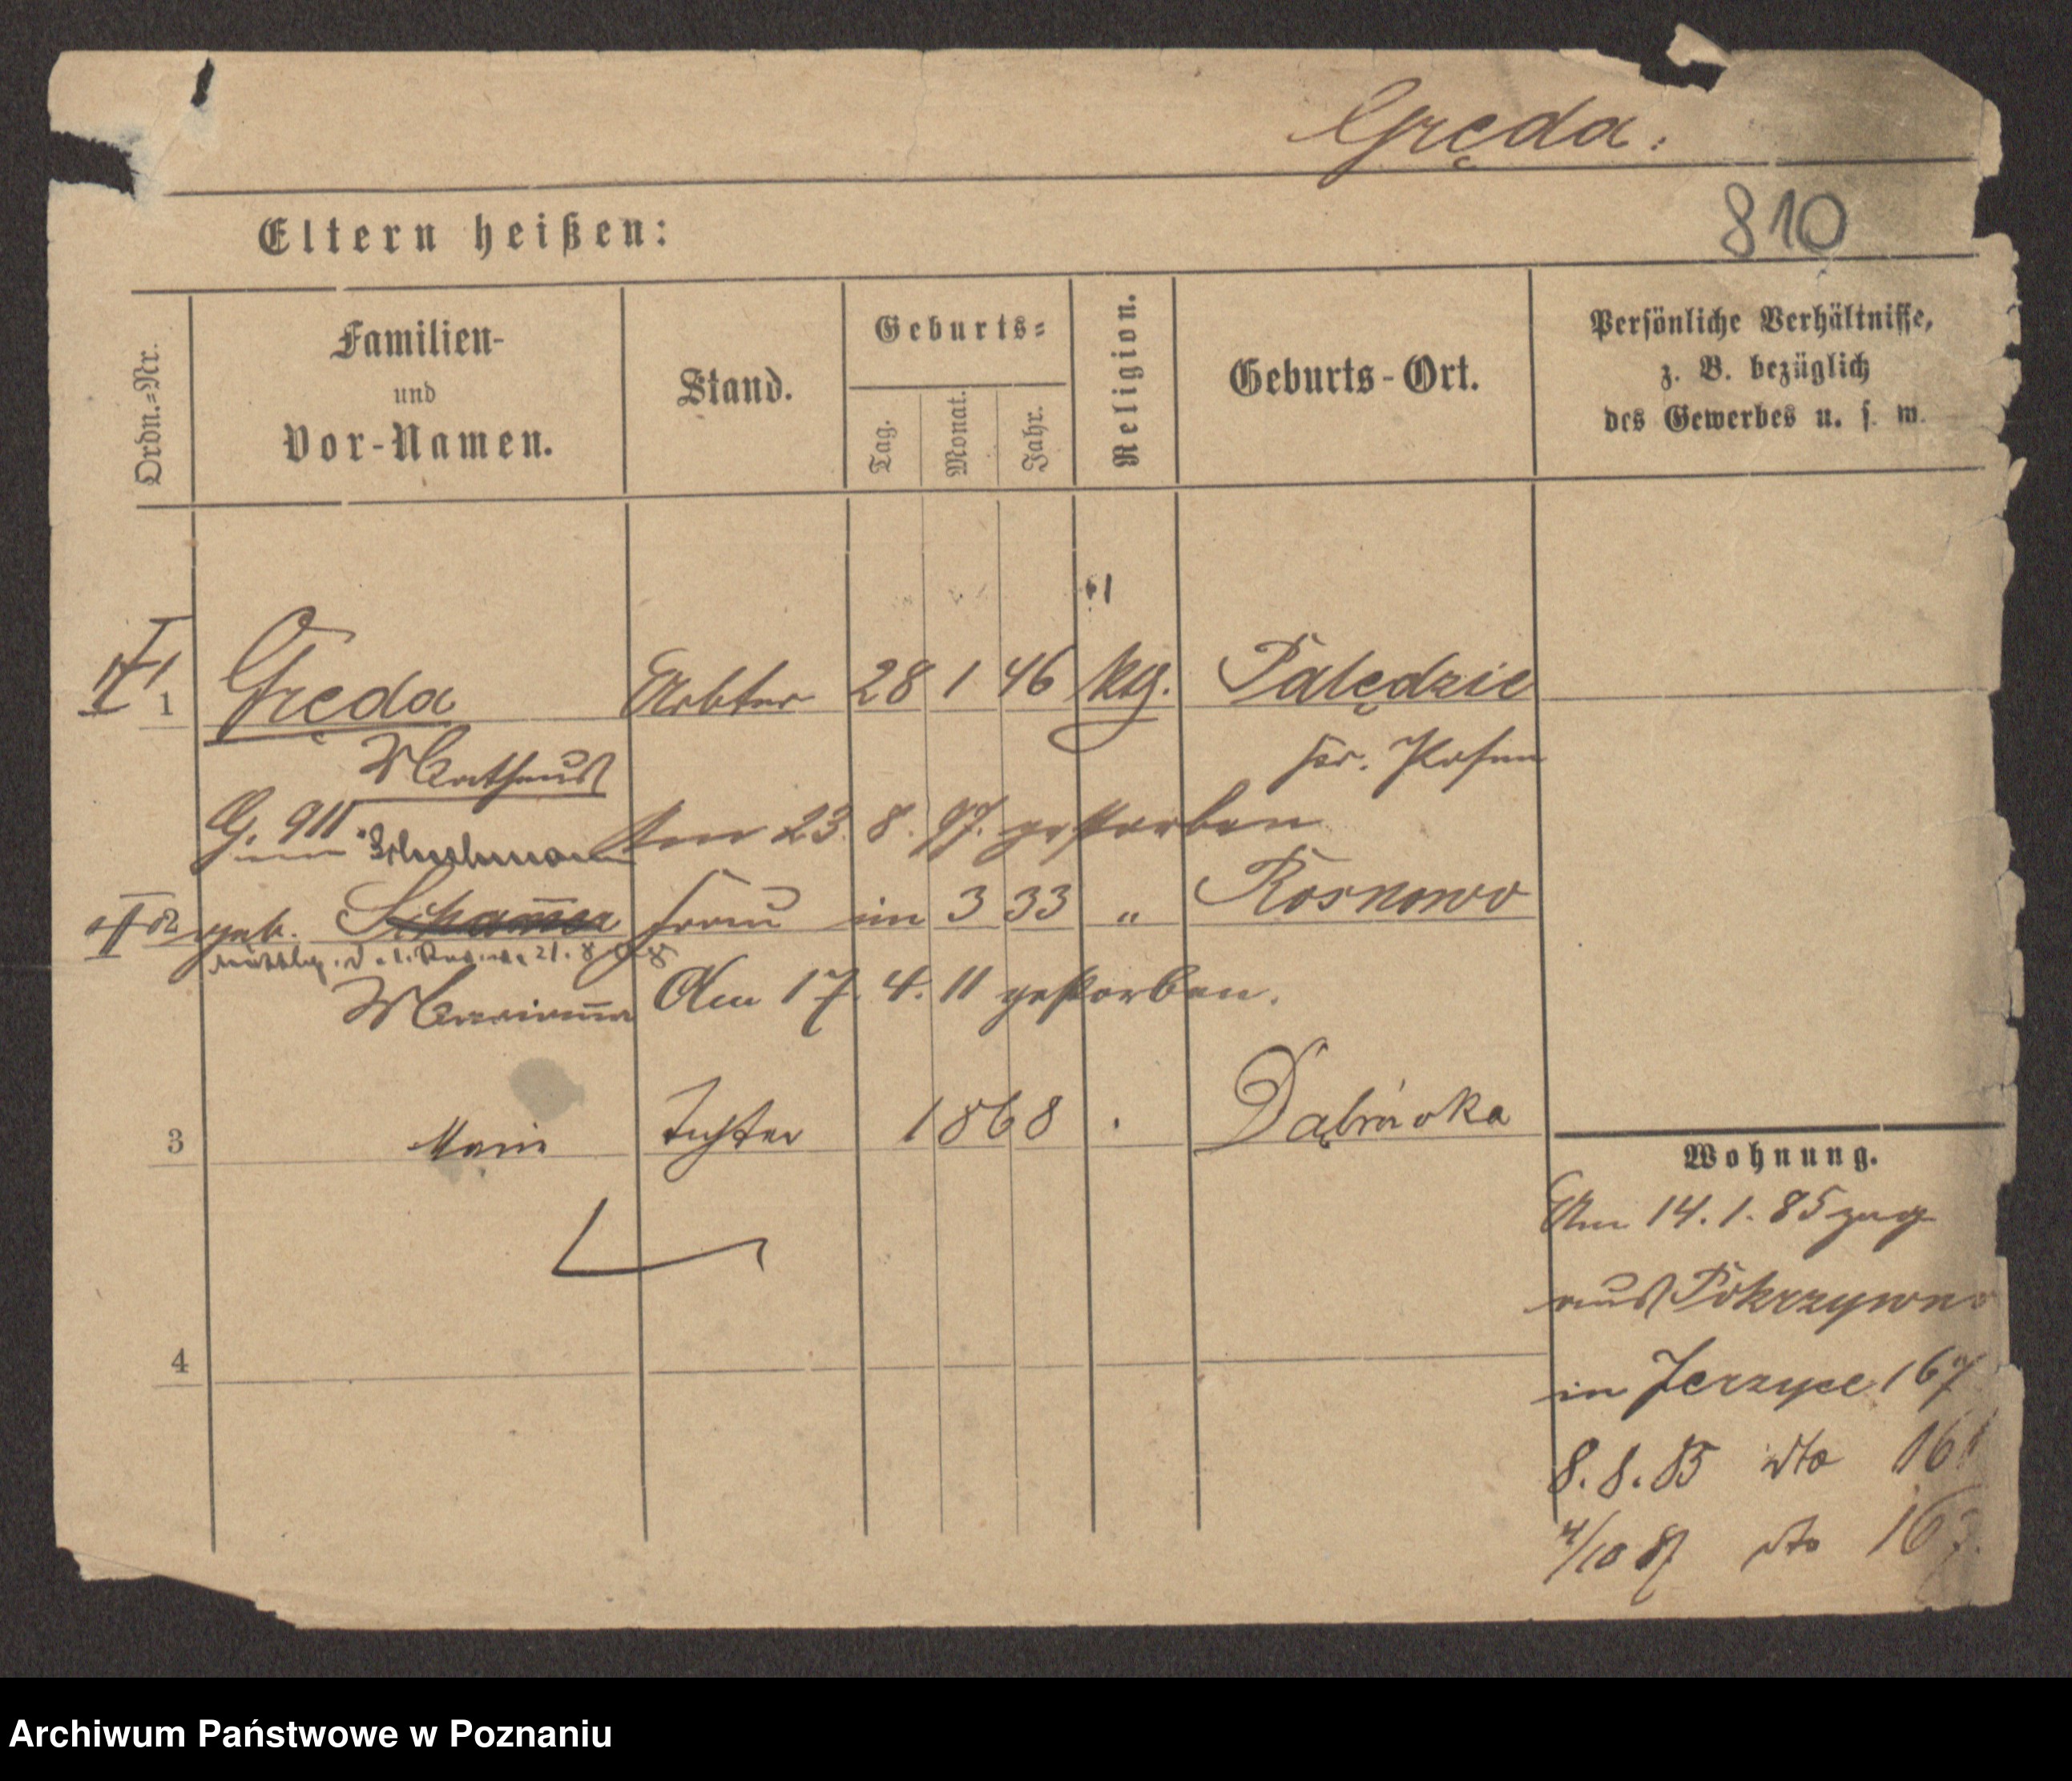 Gręda.
810
Eltern heißen:
Ordn.=Nr.
Familien-
und
Vor-Namen.
Stand.
Geburts=
Tag.
Monat.
Jahr.
Religion.
Geburts-Ort.
Persönliche Verhältnisse,
z. B. bezüglich
des Gewerbes u. s. w.
1 Gręda Arbter 28 1 46 ktg. Palędzie
Matheus Kr. Posen
G. 911 am 23. 8. 97. gestorben
geb. Frau im 3 33 " Rosnowo
21. 8.
Marianna Am 17. 4. 11 gestorben.
3 Marie Tochter 1868 Dąbrówka
4
Wohnung.
Am 14. 1. 85 zug
aus Pokrzywno
in Jerzyce 167
8. 8. 85 dto 161
4/10 87 dto 167.
Archiwum Państwowe w Poznaniu